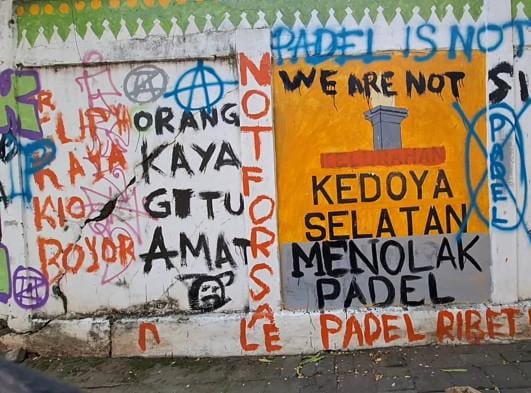 PADEL IS NOT
WE ARE NOT
NOT FOR SALE
ORANG
KAYA
GITU
AMAT
KELURAHAN
KEDOYA
SELATAN
MENOLAK
PADEL
PADEL
PADEL RIBET
RAYA
KIO
ROYOR